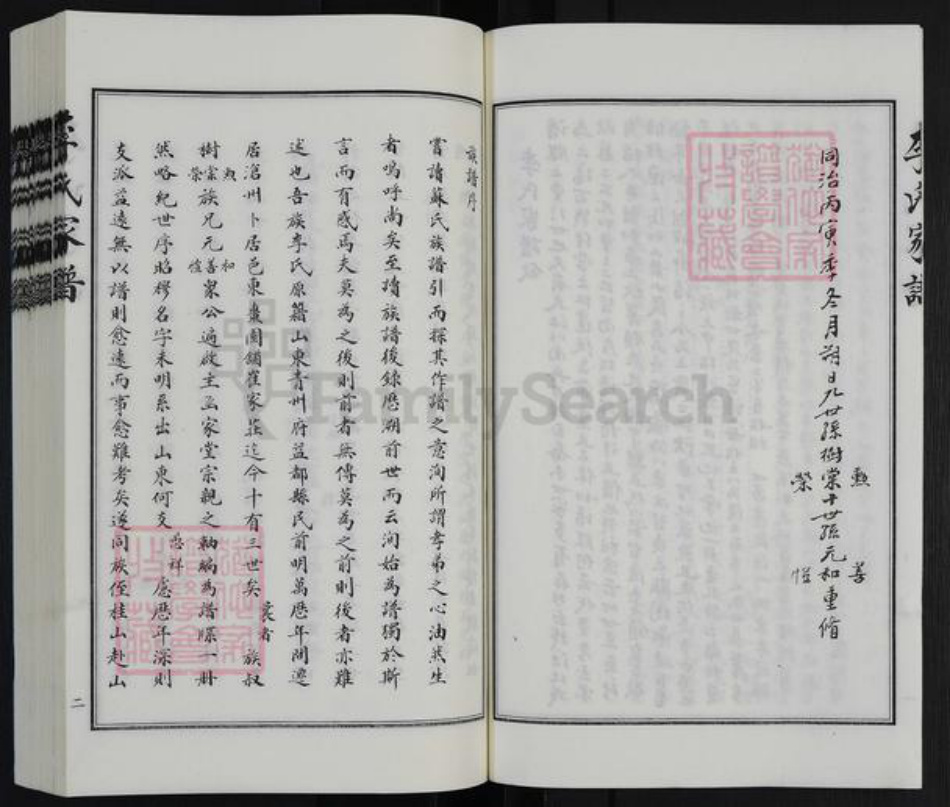 李氏家譜
同治丙寅季冬月朔日九世孫樹勲棠榮十世孫元善和愷重脩
族譜序
嘗讀蘇氏族譜引而探其作譜之意洵所謂孝弟之心油然生
者嗚呼尚矣至讀族譜後錄歷溯前世而云洵始為譜獨於斯
言而有感焉夫莫為之後則前者無傳莫為之前則後者亦難
述也吾族李氏原籍山東青州府益都縣民前明萬歷年間遷
居滄州卜居邑東棗園舖崔家莊迄今十有三世矣 族叔
樹勲棠榮族兄元和善愷家公遍啟主函家堂宗親之軸編為譜牒一册
然略紀世序昭穆名字未明系出山東何支 慮歷年深則
支派益遠無以譜則愈遠而事愈難考矣遂同族侄桂山赴山
二
李氏家譜
FamilySearch